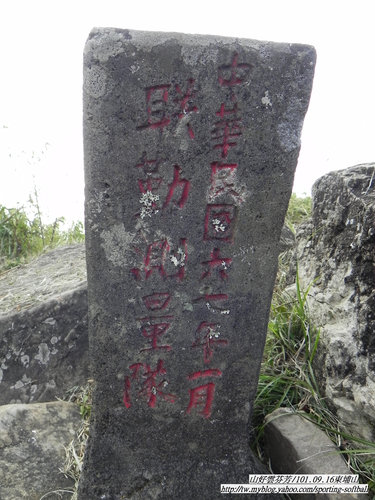 中華民國六七年一月
聯勤測量隊
山好雲芬芳/101.09.16東埔山
http://tw.myblog.yahoo.com/sporting-softball